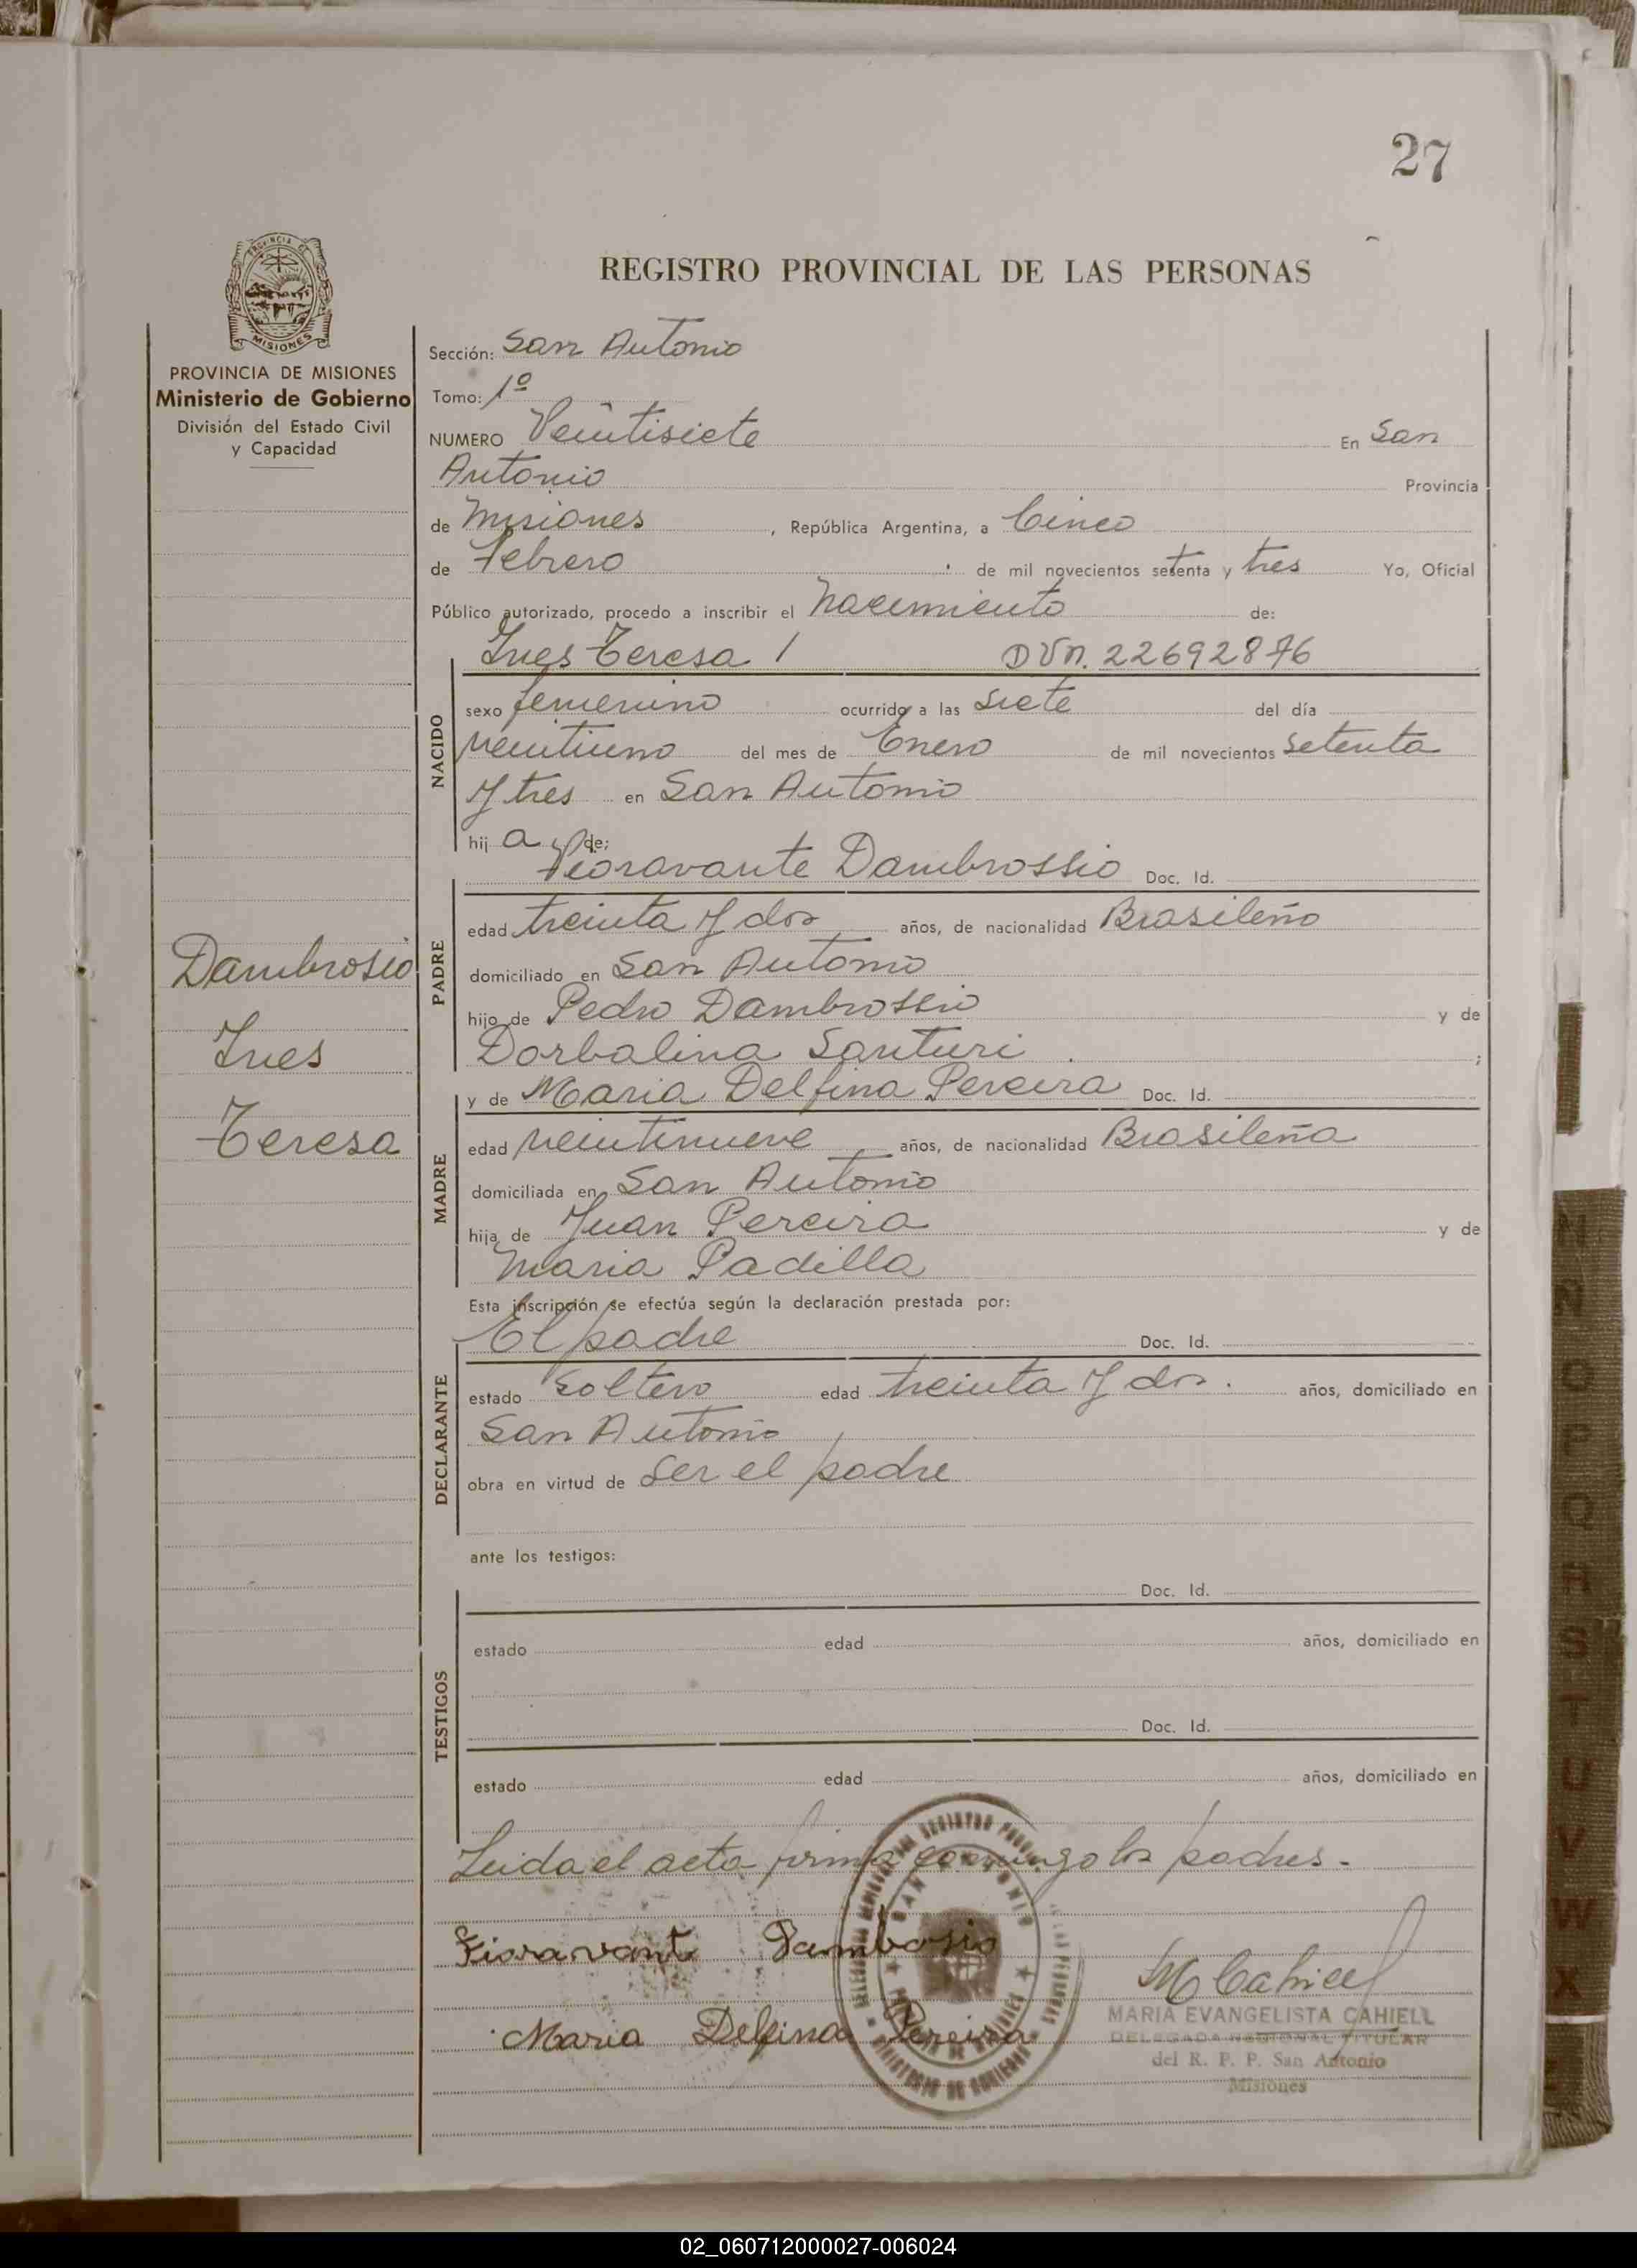 27
REGISTRO PROVINCIAL DE LAS PERSONAS
PROVINCIA DE MISIONES
Ministerio de Gobierno
División del Estado Civil
y Capacidad
Dambrosio
Ines
Teresa
Sección: San Antonio
Tomo: 1º
NUMERO Veintisiete En San
Antonio Provincia
de Misiones, República Argentina, a Cinco
de Febrero de mil novecientos setenta y tres Yo, Oficial
Público autorizado, procedo a inscribir el Nacimiento de:
Ines Teresa / 22692876
NACIDO
sexo femenino ocurrido a las siete del día
veintiuno del mes de Enero de mil novecientos setenta
y tres en San Antonio
hij a de:
Fioravante Dambrossio Doc. Id.
PADRE
edad treinta y dos años, de nacionalidad Brasileño
domiciliado en San Antonio
hijo de Pedro Dambrossio y de
Dorbalina Santuri ;
y de Maria Delfina Pereira Doc. Id.
MADRE
edad veintinueve años, de nacionalidad Brasileña
domiciliada en San Antonio
hija de Juan Pereira y de
Maria Padilla
Esta inscripción se efectúa según la declaración prestada por:
El padre Doc. Id.
DECLARANTE
estado soltero edad treinta y dos. años, domiciliado en
San Antonio
obra en virtud de ser el padre
ante los testigos:
Doc. Id.
TESTIGOS
estado edad años, domiciliado en
Doc. Id.
estado edad años, domiciliado en
Leida el acta firma conmigo los padres.-
Fioravant Dambosio
Maria Delfina Pereira
M Cahiell
MARIA EVANGELISTA CAHIELL
DELEGADA REGIONAL TITULAR
del R. P. P. San Antonio
Misiones
M
N
O
P
Q
R
S
T
U
V
W
X
02_060712000027-006024